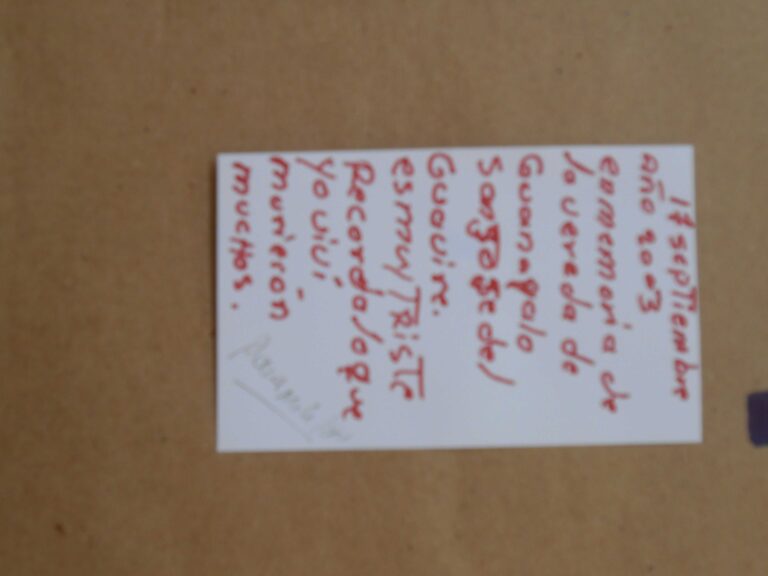 17 septiembre
Año 2003
enmemoria de
la vereda de
Guanapalo
San José del
Guavire.
es muy TRiSTe
Recordaloque
yo viví
murierón
muchos.